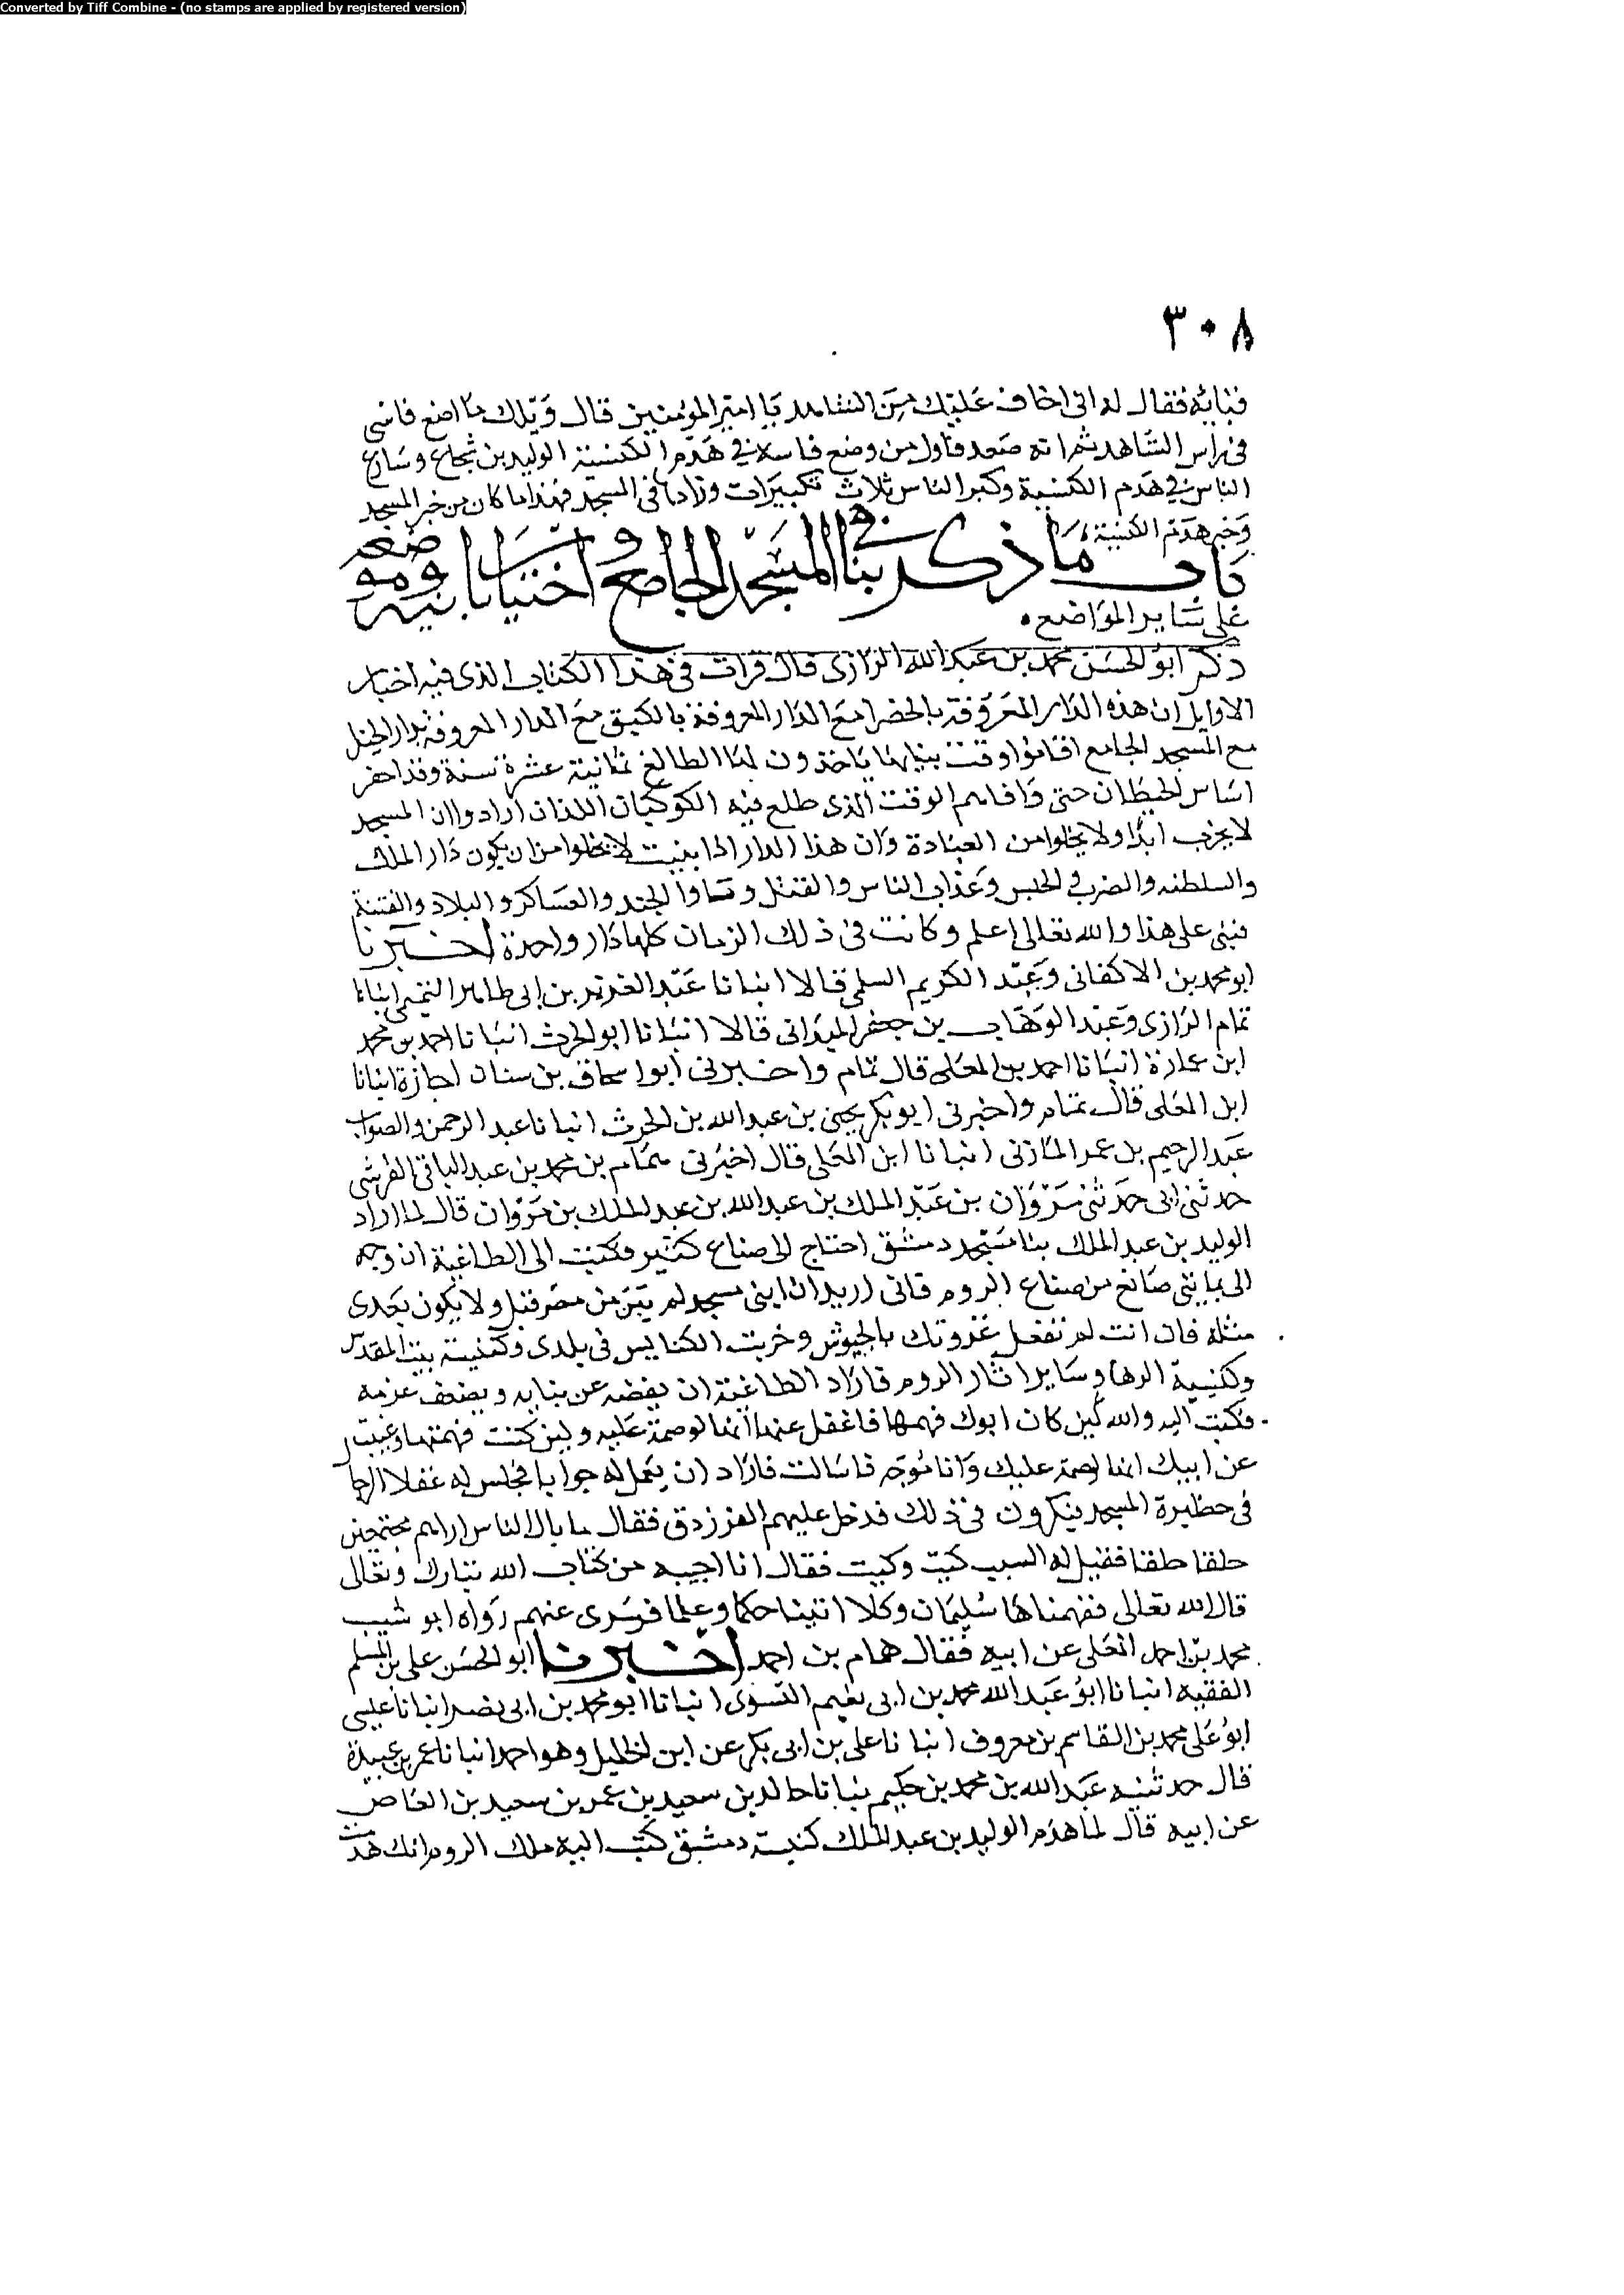 Converted by Tiff Combine - (no stamps are applied by registered version)
٣٠٨
فقال له انى اخاف عليك من الشاهد يا امير المومنين قال ويلك ما اضع فاسى
فى راس الشاهد ثم انه صعد فاول من وضع فاسا فى هدم الكنيسة الوليد بن وسارع
الناس فى هدم الكنيسة وكبر الناس ثلاث تكبيرات وزادها فى المسجد فهذا ما كان من خبر المسجد
وخبر هدم الكنيسة
باب ما ذكر فى بنا المسجد الجامع واختيار بانيه وموضعه
على ساير المواضع
ذكر ابو الحسن محمد بن عبد الله الرازى قال قرات فى هذا الكتاب الذى فيه اخبار
الاوايل ان هذه الدار المعروفة بالخضرا مع الدار المعروفة بالكبق مع الدار المعروفة بدار الخيل
مع المسجد الجامع اقاموا وقت بنيانها ياخذون لها الطالع ثمانية عشرة سنة وقد احفر
اساس الحيطان حتى وافاهم الوقت الذى طلع فيه الكوكبان اللذان ارادوا ان المسجد
لا يخرب ابدا ولا يخلوا من العبادة وان هذا الدار اذا بنيت لا يخلوا من ان يكون دار الملك
والسلطنه والضرب والحبس وعذاب الناس والقتل الجند والعساكر والبلاد والفتنة
فبنى على هذا والله تعالى اعلم وكانت فى ذلك الزمان كلها دار واحدة اخبرنا
ابو محمد بن الاكفانى وعبد الكريم السلمى قالا انبانا عبد العزيز بن ابى طاهر التميمى انبانا
تمام الرازى وعبد الوهاب بن جعفر الميدانى قالا انبانا ابو الحرث انبانا احمد بن محمد
ابن عمارة انبانا احمد بن المعلى قال تمام واخبرنى ابو اسحاق بن سنان اجازة انبانا
ابن المعلى قال تمام واخبرنى ابو بكر يحيى بن عبد الله بن الحرث انبانا عبد الرحمن والصواب
عبد الرحيم بن عمر المازنى انبانا ابن المعلى قال اخبرنى تمام بن محمد بن عبد الباقى القرشى
حدثنى ابى حدثنى مروان بن عبد الملك بن عبد الله بن عبد الملك بن مروان قال لما اراد
الوليد بن عبد الملك بنا مسجد دمشق احتاج الى صناع كثير فكتب الى الطاغية ان وجه
الى بمايتى صانع من صناع الروم فانى اريد ان ابنى مسجد لم يبن من مضى قبلى ولا يكون بعدى
مثله فان انت لم تفعل غزوتك بالجيوش وخربت الكنايس فى بلدى وكنيسة بيت المقدس
وكنيسة الرها وساير اثار الروم فاراد الطاغية ان يفضه عن بنايه ويضعف عزمه
فكتب اليه والله لين كان ابوك فهمها فاغفل عنها انها لوصمة عليه ولين كنت فهمتها وغيبت
عن ابيك انها لوصمة عليك وانا موجه ما سالت فاراد ان يعمل له جوابا فجلس له عقلا الرجا
فى حظيرة المسجد يفكرون فى ذلك فدخل عليهم الفرزدق فقال ما بال الناس اراهم مجتمعين
حلقا حلقا فقيل له السبب كيت وكيت فقال انا اجيبه من كتاب الله تبارك وتعالى
قال الله تعالى ففهمناها سليمان وكلا اتينا حكما وعلما فسرى عنهم رواه ابو شيب
محمد بن احمد المعلى عن ابيه فقال همام بن احمد اخبرنا ابو الحسن على بن المسلم
الفقيه انبانا ابو عبد الله محمد بن ابى نعيم النسوى انبانا ابو محمد بن ابى نصر انبانا عيسى
ابو على محمد بن القاسم بن معروف انبانا على بن ابى بكر عن ابن الخليل وهو احمد انبانا عمر بن عبيدة
قال حدثنيه عبد الله بن محمد بن حكيم نبانا خالد بن سعيد بن عمر بن سعيد بن العاص
عن ابيه قال لما هدم الوليد بن عبد الملك كنيسة دمشق كتب اليه ملك الروم انك هدمت